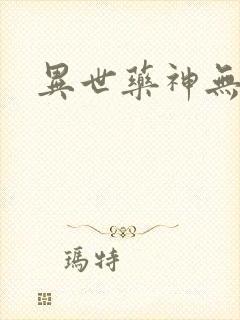 異世藥神無
瑪特